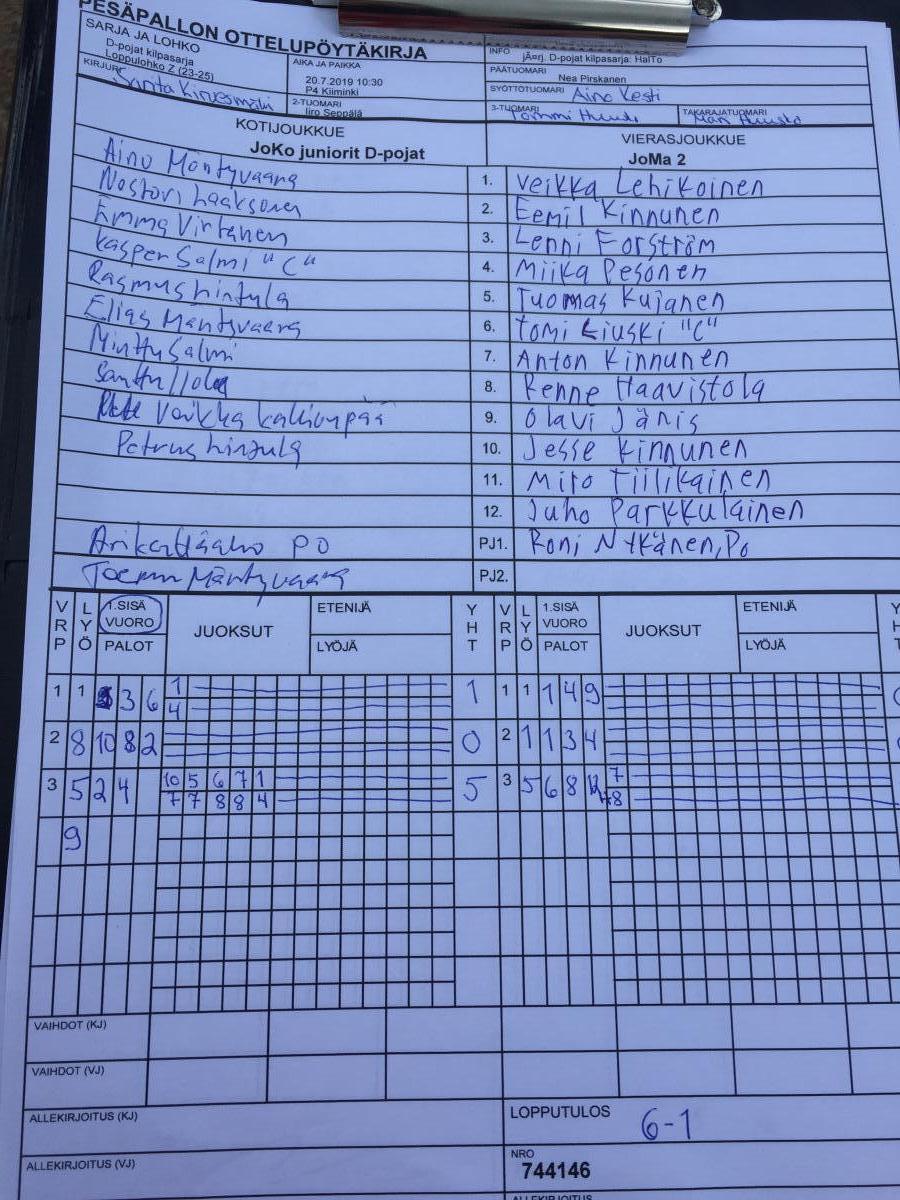 PESÄPALLON OTTELUPÖYTÄKIRJA
SARJA JA LOHKO
D-pojat kilpasarja
Loppulohko Z (23-25)
AIKA JA PAIKKA
20.7.2019 10:30
P4 Kiiminki
INFO
jÄrrj. D-pojat kilpasarja: HalTo
PÄÄTUOMARI
Nea Pirskanen
KIRJURI
2-TUOMARI
Iiro Seppälä
SYÖTTÖTUOMARI Aino Kesti
3-TUOMARI
Tommi
TAKARAJATUOMARI
KOTIJOUKKUE
JoKo juniorit D-pojat
VIERASJOUKKUE
JoMa 2
Aino Mäntyvaara
1. Veikka Lehikoinen
Nestori Laaksonen
2. Eemil Kinnunen
Emma Virtanen
3. Lenni Forström
Kasper Salmi "C"
4. Miika Pesonen
Rasmus Hintula
5. Tuomas Kujanen
Elias Mäntyvaara
6. Tomi Liuski "C"
Minttu Salmi
7. Anton Kinnunen
Santtu
8. Renne Haavistola
Veikka Kallionpää
9. Olavi Jänis
Petrus Hintula
10. Jesse Kinnunen
11. Miro Tiilikainen
12. Juho Parkkulainen
PO
PJ1. Roni Nykänen, Po
Mäntyvaara
PJ2.
VRP LYÖ 1.SISÄ VUORO PALOT JUOKSUT ETENIJÄ LYÖJÄ YHT VRP LYÖ 1.SISÄ VUORO PALOT JUOKSUT ETENIJÄ LYÖJÄ
1 1 3 6 1 1 1 1 1 4 9
4
2 8 10 8 2 0 2 1 1 3 4
3 5 2 4 10 5 6 7 1 5 3 5 6 8 12 7
7 7 8 8 4 8
9
VAIHDOT (KJ)
VAIHDOT (VJ)
ALLEKIRJOITUS (KJ)
LOPPUTULOS
6-1
ALLEKIRJOITUS (VJ)
NRO
744146
ALLEKIRJOITUS